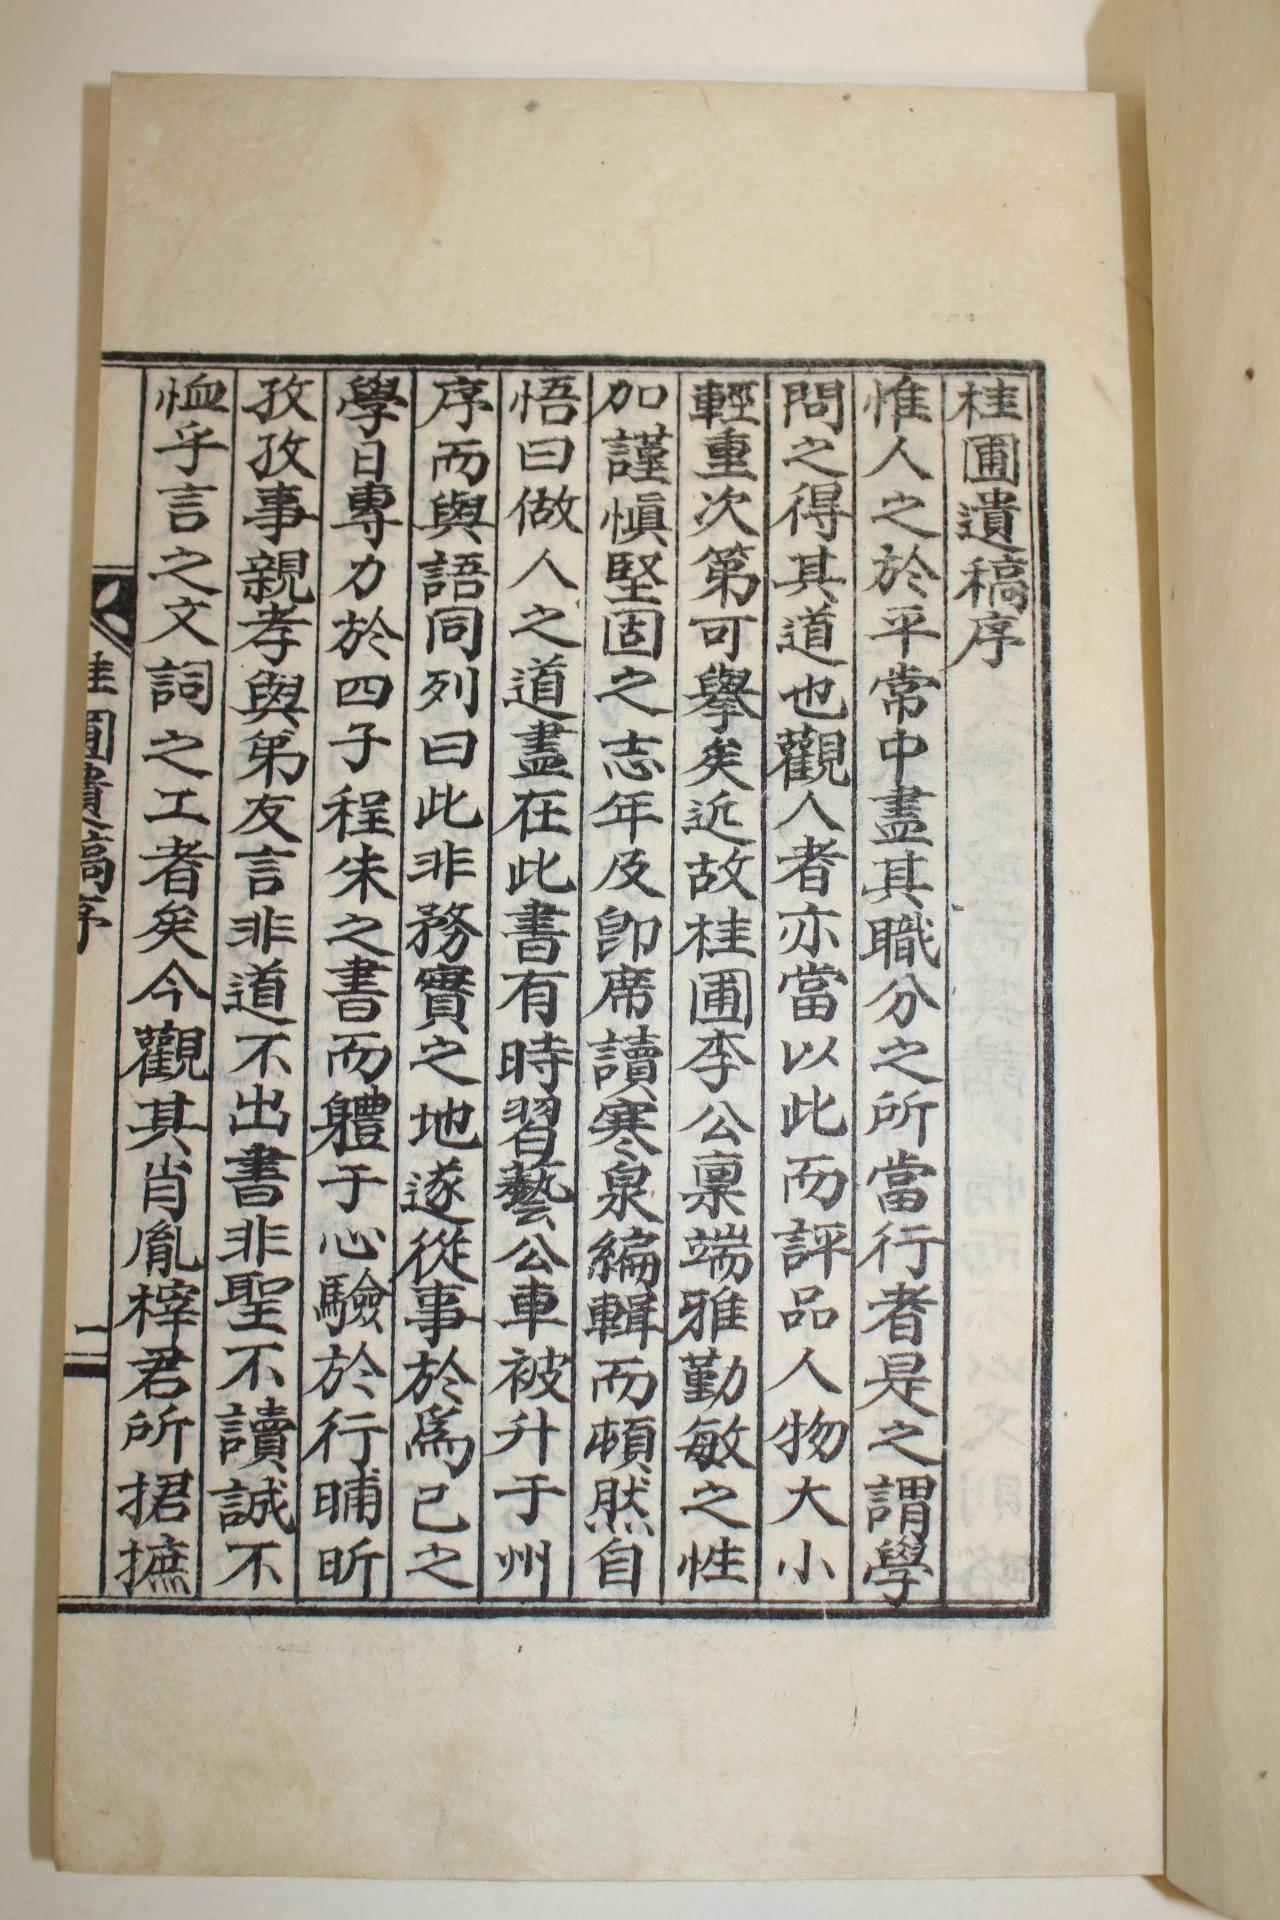 桂圃遺稿序
惟人之於平常中盡其職分之所當行者是之謂學
問之得其道也觀人者亦當以此而評品人物大小
輕重次第可擧矣近故桂圃李公稟端雅勤敏之性
加謹愼堅固之志年及卽席讀寒泉編輯而頓然自
悟曰做人之道盡在此書有時習藝公車被升于州
序而與語同列曰此非務實之地遂從事於爲己之
學日專力於四子程朱之書而軆于心驗於行晡昕
孜孜事親孝與弟友言非道不出書非聖不讀誠不
恤乎言之文詞之工者矣今觀其肖胤梓君所捃摭
桂圃遺稿序
一